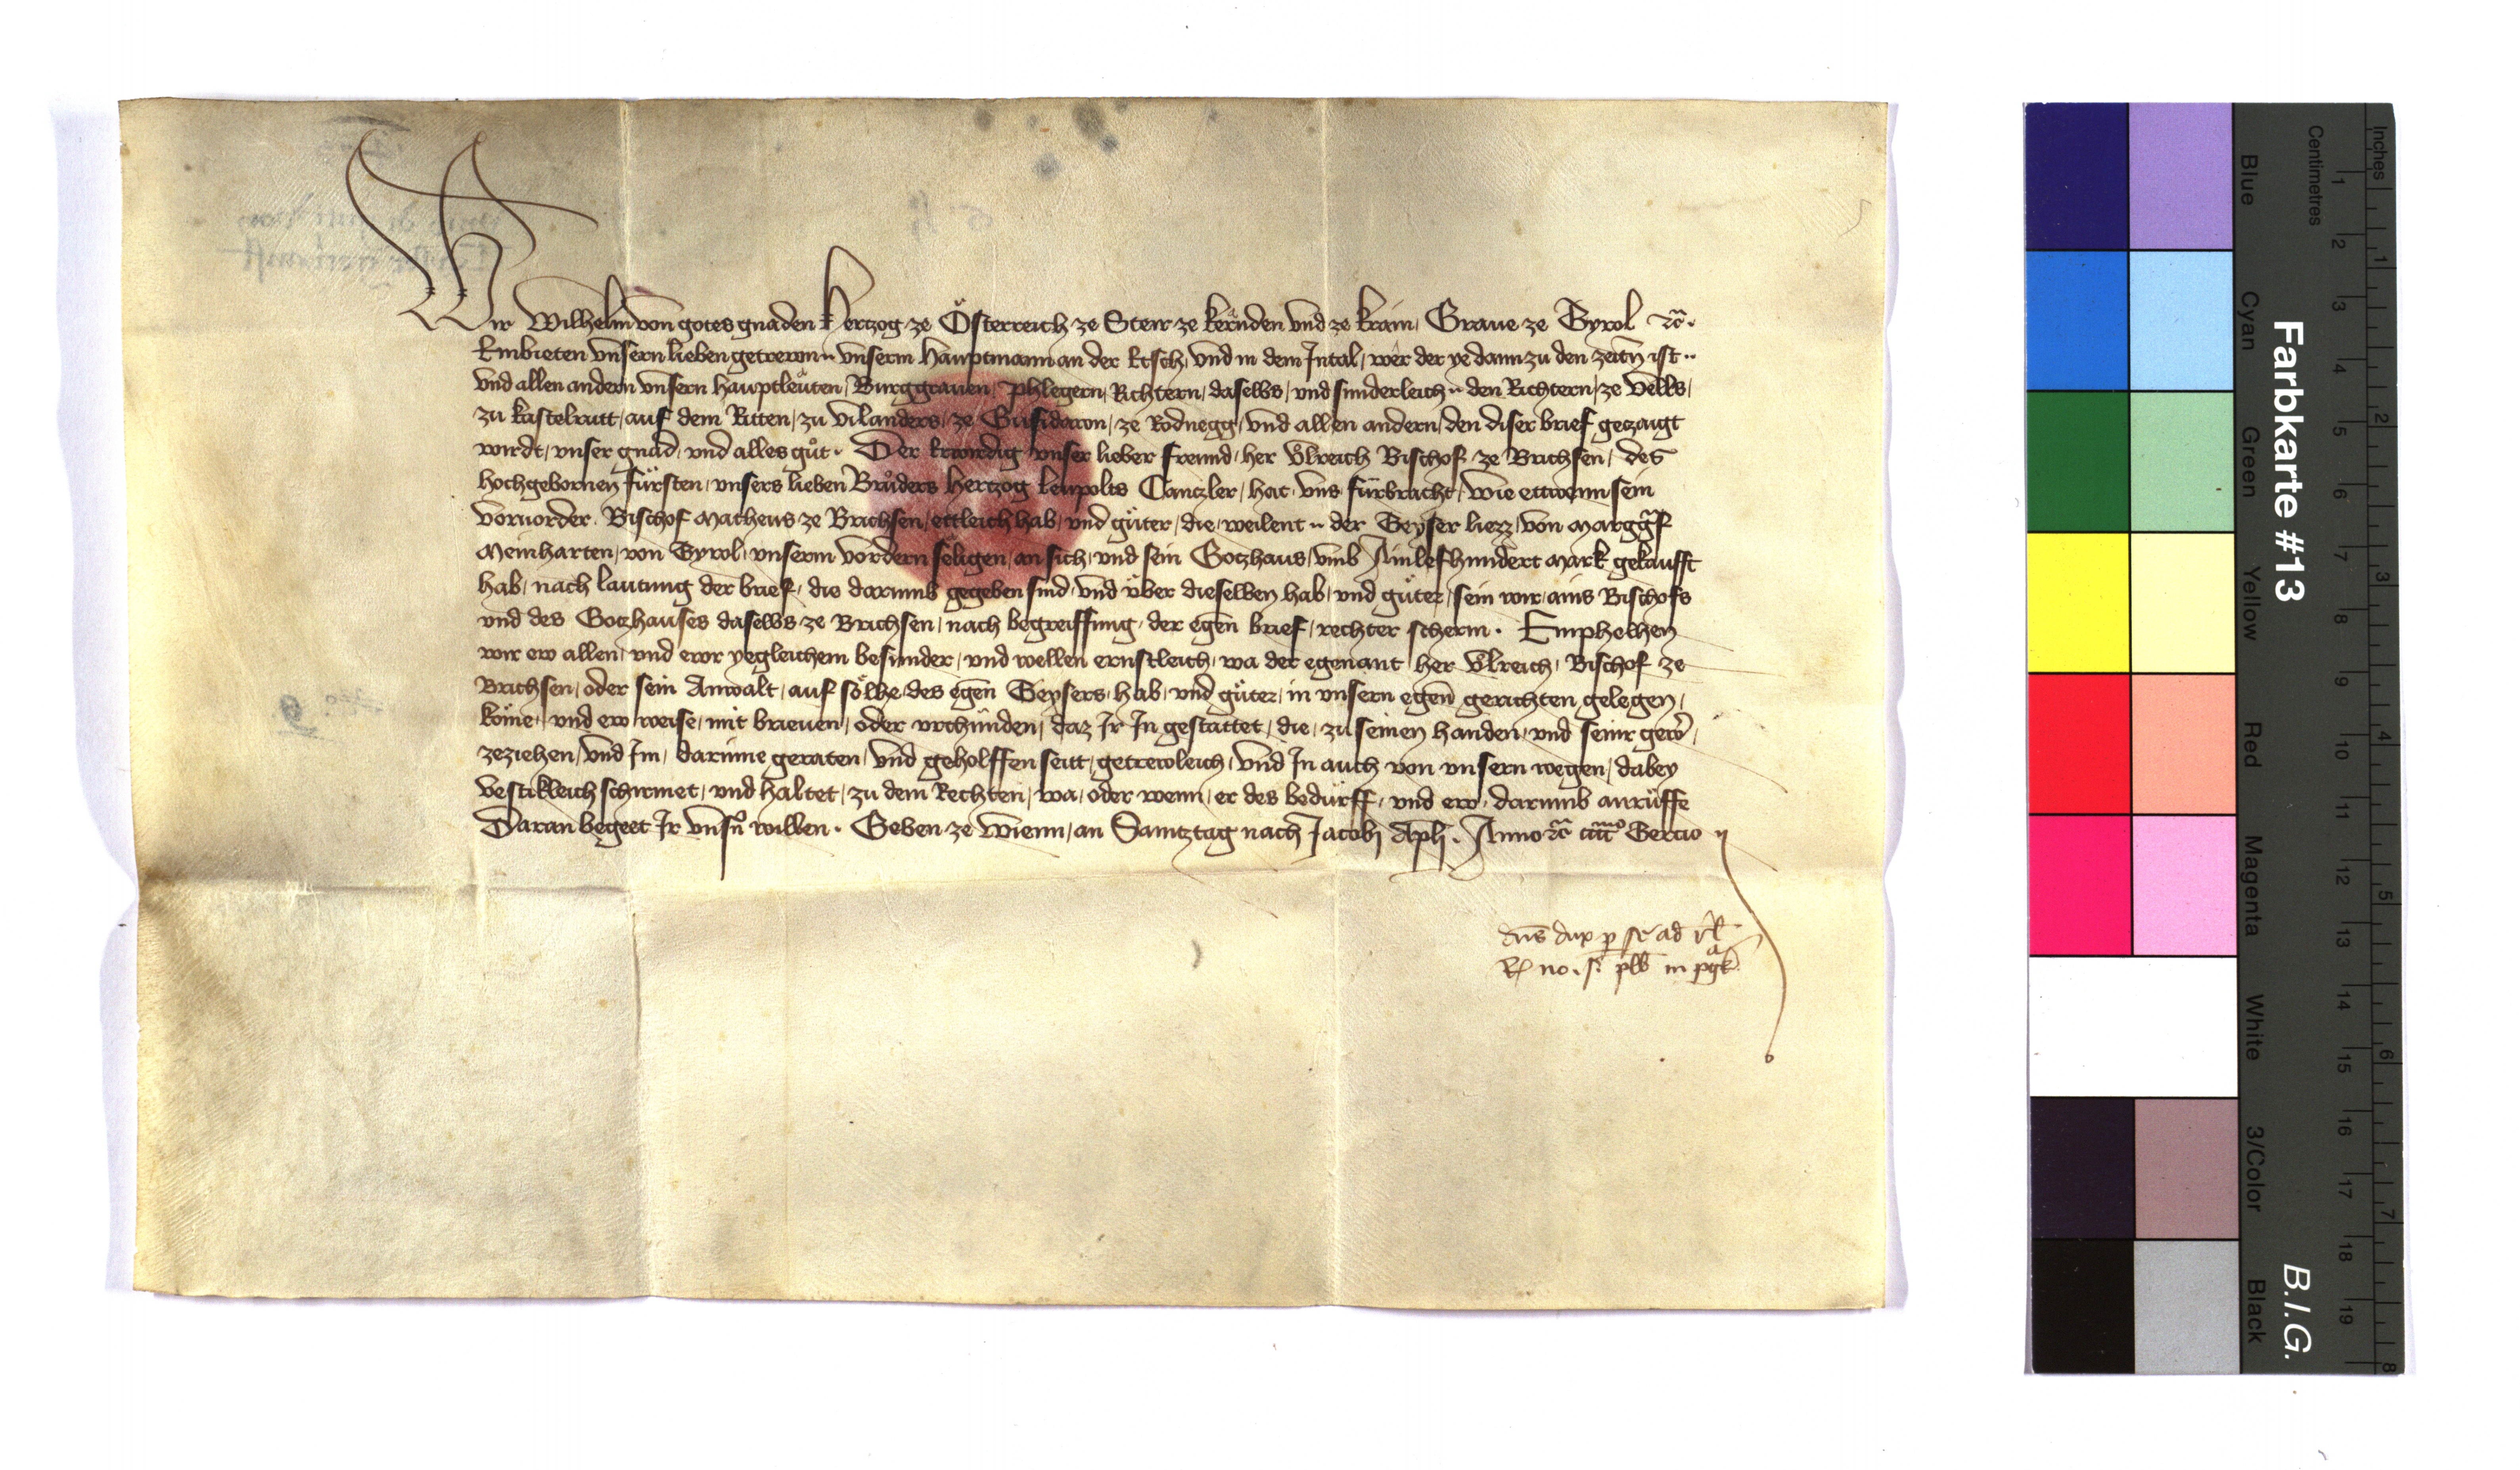 Wir Wilhelm von gotes gnaden Hertzog ze Österreich ze Steir ze Kernden vnd ze Krain, Graue ze Tyrol etc.
Embieten vnsern lieben getrewn .. vnserm Hauptmann an der Etsch, vnd in dem Jntal, wer der ye dann zu den zeitn ist ..
vnd allen andern vnsern Hauptleuten, Burggrauen, Phlegern, Richtern, daselbs, vnd sunderleich .. den Richtern, ze Vells,
zu Kastelrutt, auf dem Ritten, zu Vilanders, ze Gufidawn, ze Rodnegg, vnd allen andern, den diser brief geczaigt
wirdt, vnser gnad, vnd alles gůt. Der Erwirdig vnser lieber freund, her Ůlreich Bischof ze Brichsen, des
hochgebornen fürsten, vnsers lieben Brůders Hertzog Leupolts Canczler, hat vns fürbracht, wie ettwenn sein
voruorder, Bischof Matheus ze Brichsen, ettleich hab, vnd gůter, die, weilent .. der Geyser liezz, von Marggf
Meinharten, von Tyrol, vnserm vordern seligen, an sich, vnd sein Gotzhaus, vmb Ainlefhundert Mark gekaufft
hab, nach lautung der brief, die darumb gegeben sind, vnd über dieselben hab, vnd güter, sein wir, ains Bischofs
vnd des Gotzhauses daselbs ze Brichsen, nach begreiffung, der egen brief, rechter scherm. Emphelhen
wir ew allen, vnd ewr yegleichem besunder, vnd wellen ernstleich, wa der egenant her Ůlreich, Bischof ze
Brichsen, oder sein Anwalt, auf sölhe des egen Geysers, hab, vnd güter, in vnsern egen gerichten gelegen,
köme, vnd ew weise, mit brieuen, oder vrchünden, daz Jr Jn gestattet, die, zu seinen handen, vnd seinr gewer,
zeziehen, vnd Jm, darinne geraten, vnd geholffen seitt, getrewleich, vnd Jn auch von vnsern wegen, dabey
vestikleich schirmet, vnd haltet, zu dem Rechten, wa, oder wenn, er des bedürff, vnd ew, darumb anrüffe
Daran begeet Jr vnsn willen. Geben ze Wienn, an Samtztag nach Jacobi Apli. Anno etc cccc Tercio
dns dux p se ad rl
Rx no. s. plb in pgk
Farbkarte #13
B.I.G.
Inches
Centimetres
1
2
3
4
5
6
7
8
9
10
11
12
13
14
15
16
17
18
19
1
2
3
4
5
6
7
8
Blue
Cyan
Green
Yellow
Red
Magenta
White
3/Color
Black